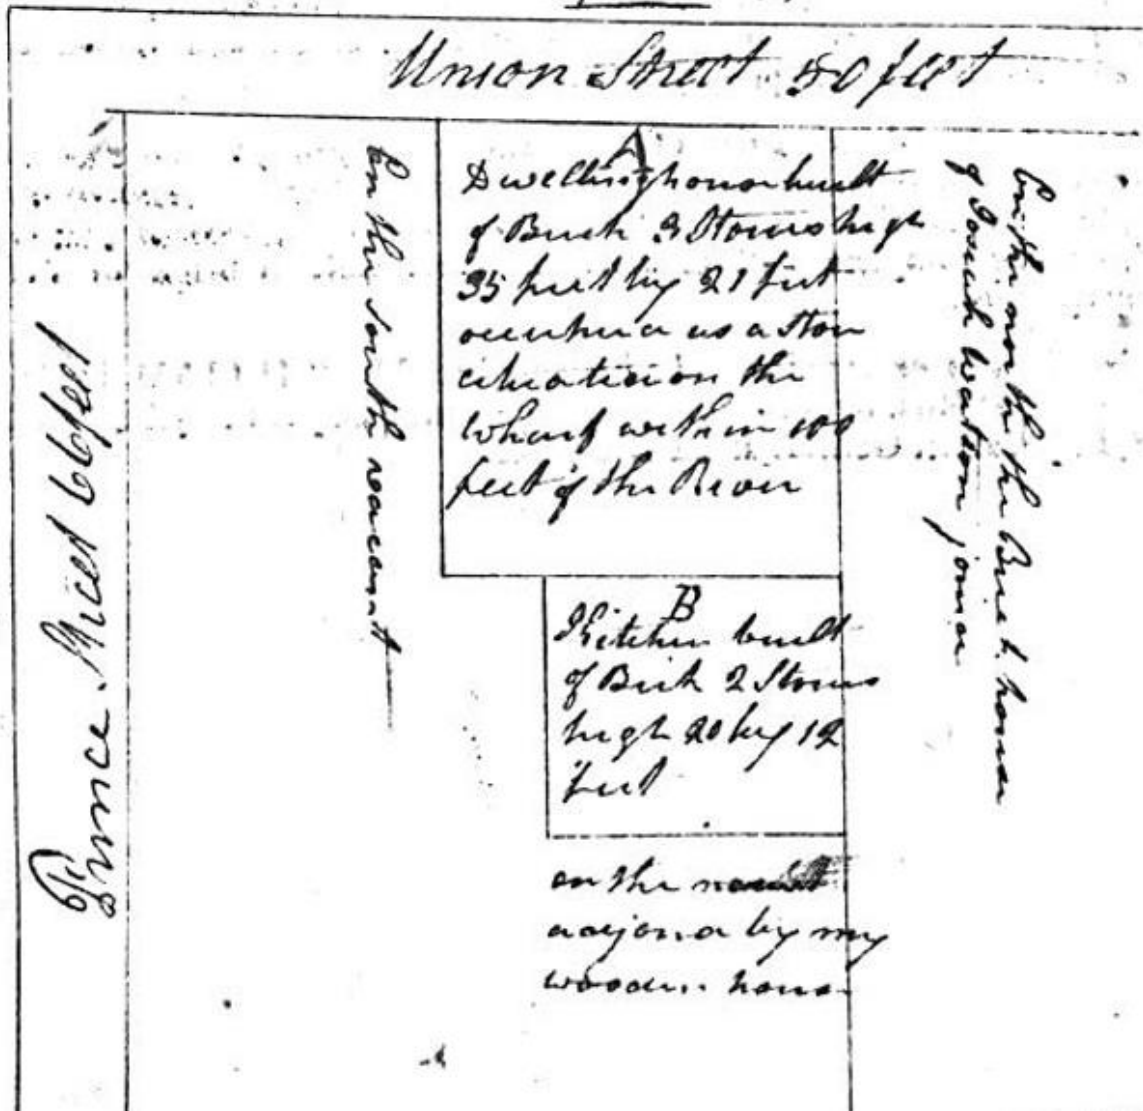 Union Street 50 feet
Prince Street 66 feet
On the South vacant
A
Dwelling house built
of Brick 3 Stories high
35 feet by 21 feet
as a Store
on the
Wharf within 100
feet of the River
B
Kitchen built
of Brick 2 Stories
high 20 by 12
feet
on the
by my
wooden house
On the north the Brick house
of Josiah Watson